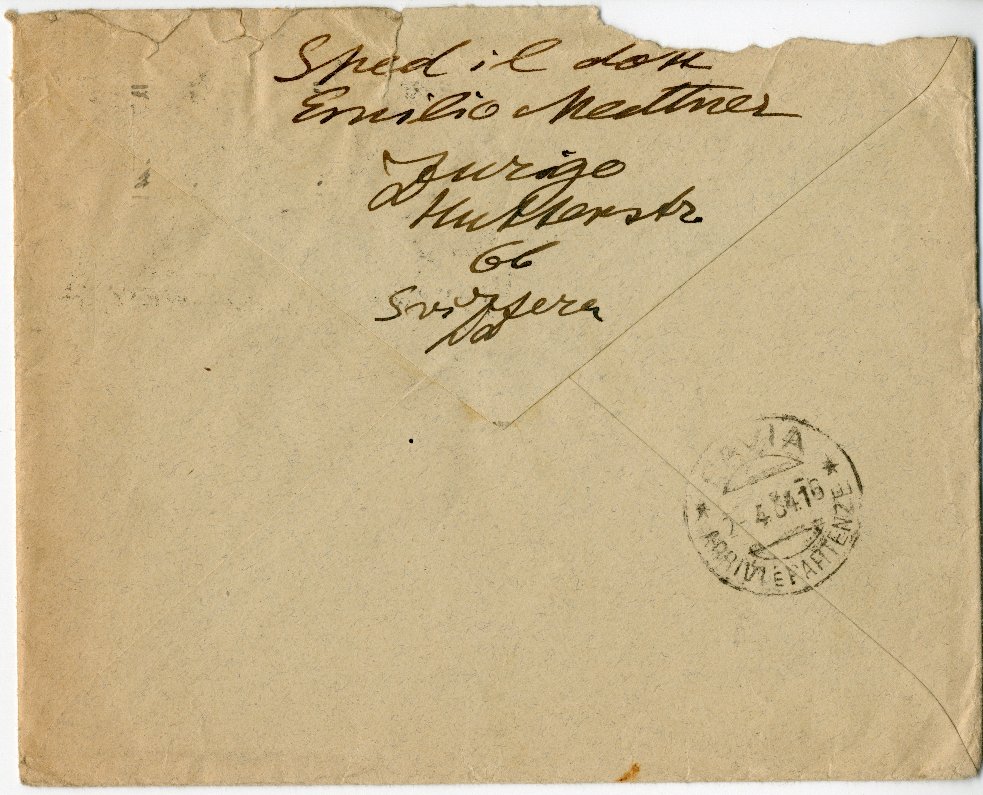 Sped il dott
Emilio Medtner
Zurigo
Huttenstr
66
Svizzera
PAVIA
4.34.16
ARRIVI E PARTENZE